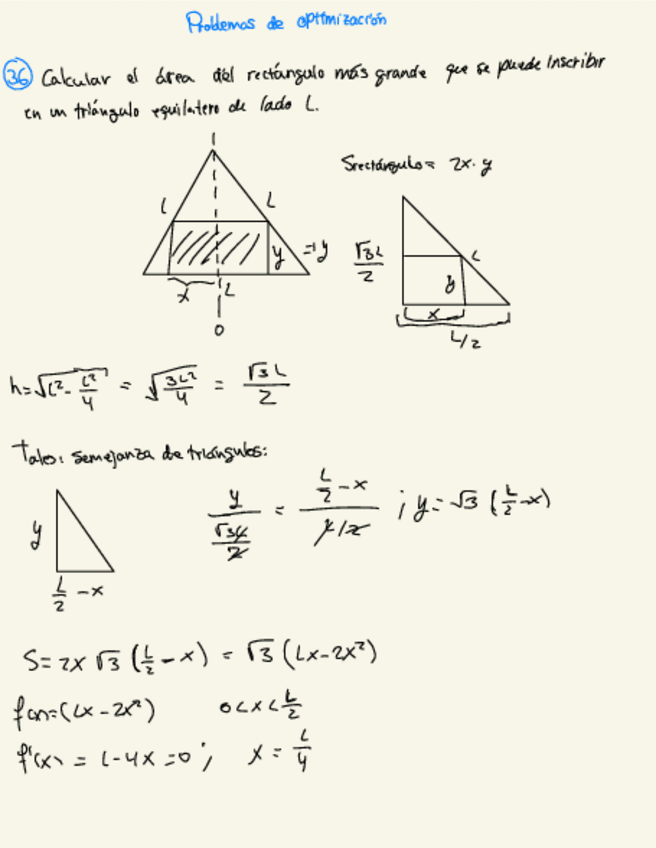 Problemas de optimización
36 Calcular el área del rectángulo más grande que se puede inscribir
en un triángulo equilatero de lado L.
Srectángulo = 2x·y
L L
y =y
x L
0
√3L/2
L
y
x
L/2
h=√(L²-L²/4) = √(3L²/4) = √3L/2
Tales: semejanza de triángulos:
y
L/2 -x
y/(√3L/2) = (L/2-x)/(L/2) ; y= √3 (L/2-x)
S= 2x √3 (L/2-x) = √3 (Lx-2x²)
f(x)=(Lx-2x²) 0<x<L/2
f'(x) = L-4x=0 ; x= L/4